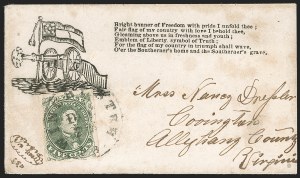 Bright banner of Freedom with pride I unfold thee;
Fair flag of my country with love I behold thee,
Gleaming above us in freshness and youth;
Emblem of Liberty, symbol of Truth;
For the flag of my country in triumph shall wave,
O'er the Southerner's home and the Southerner's grave,
Miss Nancy
Covington
Alleghany County
Virginia